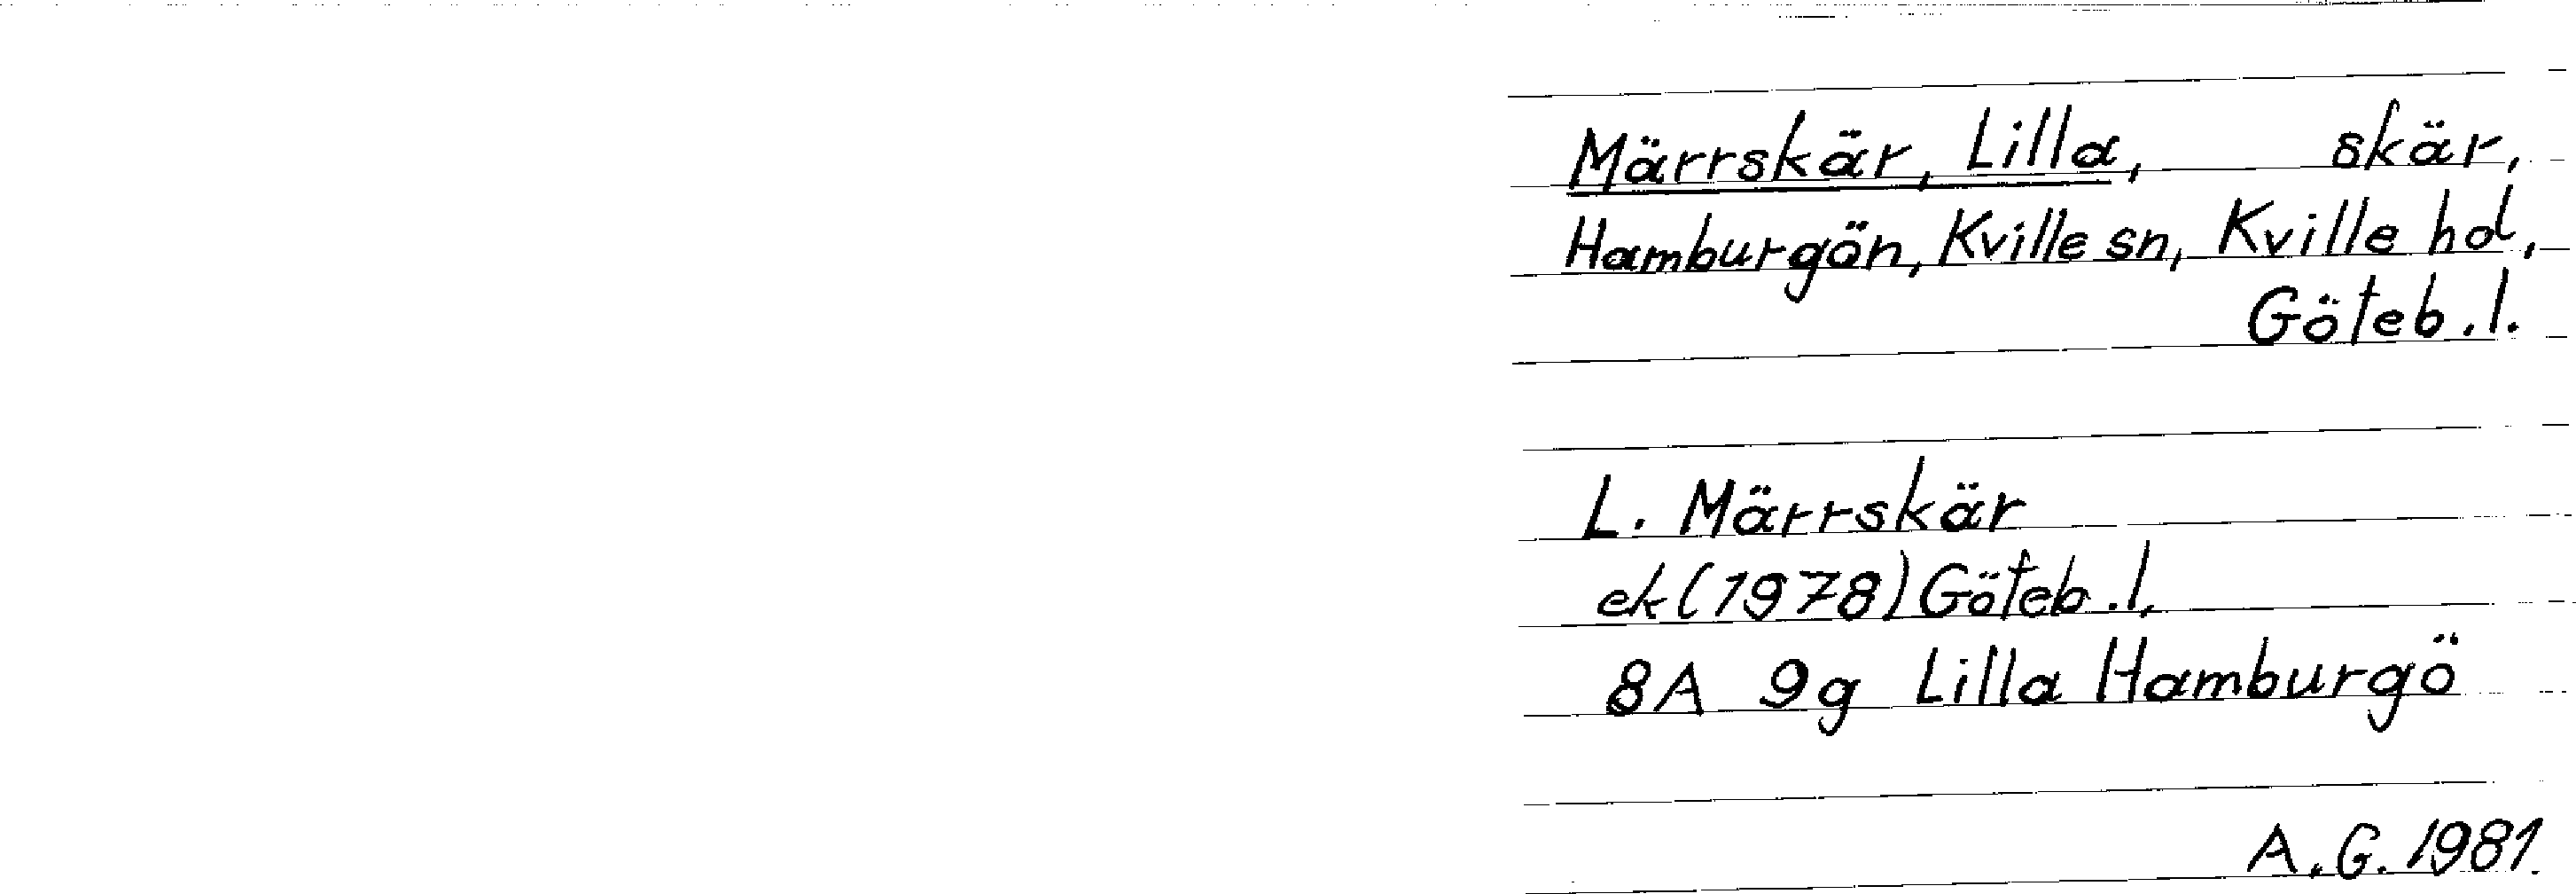 Märrskär, Lilla, skär,
Hamburgön, Kville sn, Kville hd,
Göteb.l.
L. Märrskär
ek (1978) Göteb.l,
8A 9g Lilla Hamburgö
A.G. 1981.